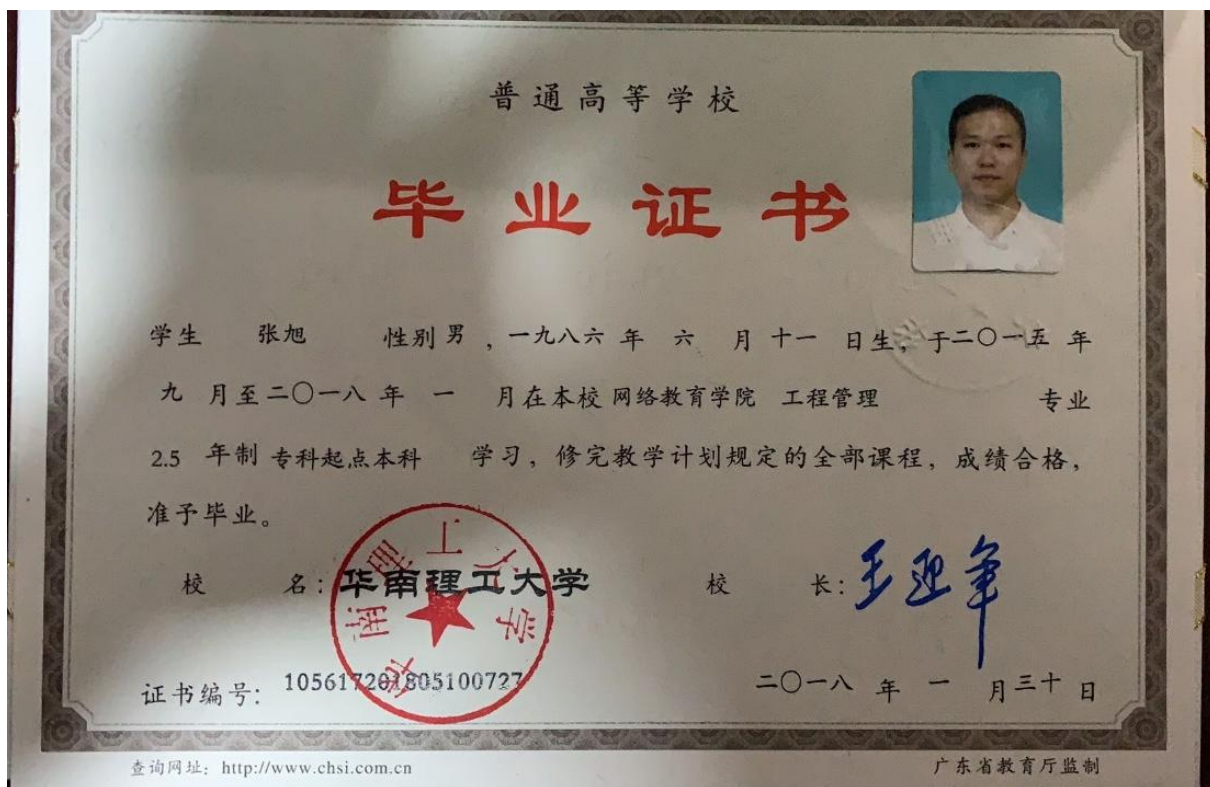 普通高等学校
毕业证书
学生 张旭 性别 男 ,一九八六 年 六 月 十一 日生,于二〇一五 年
九 月至二〇一八 年 一 月在本校 网络教育学院 工程管理 专业
2.5 年制 专科起点本科 学习,修完教学计划规定的全部课程,成绩合格,
准予毕业。
校 名:华南理工大学 校 长:王迎军
华南理工大学
证书编号: 105617201805100727 二〇一八 年 一 月三十 日
查询网址:http://www.chsi.com.cn 广东省教育厅监制